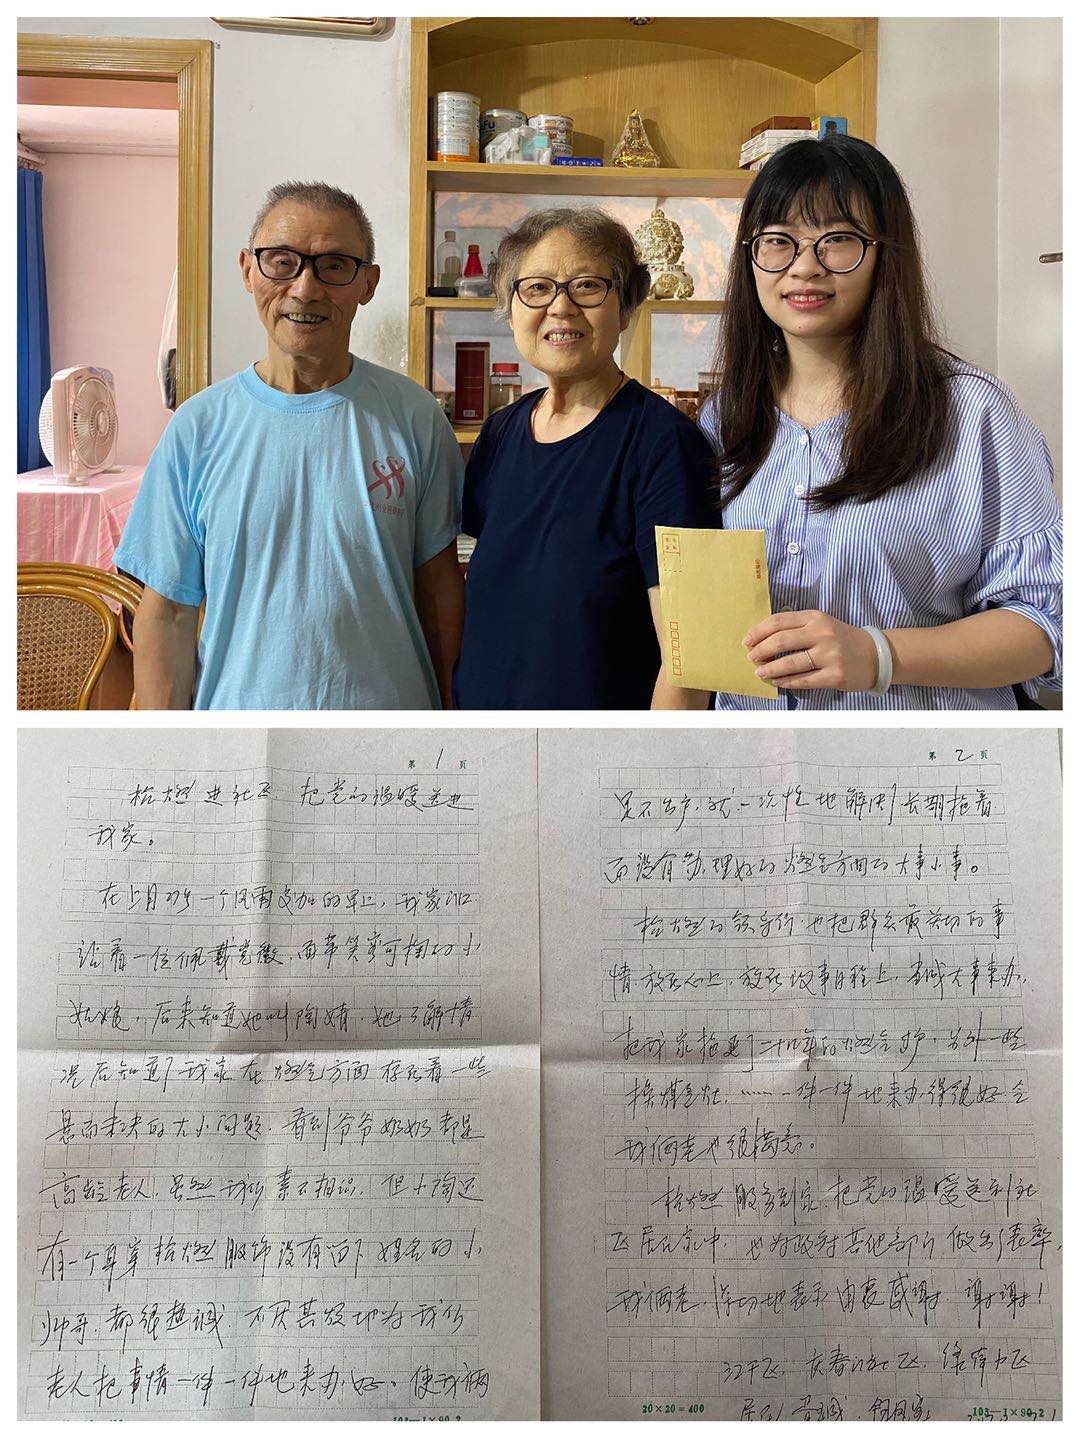 第 1 页
杭燃进社区 把党的温暖送进
我家。
在上月27号一个风雨交加的早上,我家门口
站着一位佩戴党徽、面带笑容可掬的小
姑娘,后来知道她叫陶婧,她了解情
况后知道了我家在燃气方面存在着一些
悬而未决的大小问题,看到爷爷奶奶都是
高龄老人,虽然我们素不相识,但小陶还
有一个身穿杭燃服饰没有留下姓名的小
帅哥,都很热诚,不厌其烦地为我们
老人把事情一件一件地来办好。使我俩
103—1×90.2
第 2 页
足不出户,就一次性地解决了长期拖着
而没有办理好的燃气方面的大事小事。
杭燃的领导们,也把群众最关切的事
情,放在心上,放在议事日程上,当成大事来办,
把我家拖延了二十几年的燃气过户,另外一些
换煤气灶,……一件一件地来办得很好,令
我俩老也很满意。
杭燃服务到家,把党的温暖送到社
区居民家中,也为政府其他部门做出了表率,
我俩老,深切地表示由衷感谢,谢谢!
江干区,庆春门社区,
20×20=400
103—1×90.2
居民